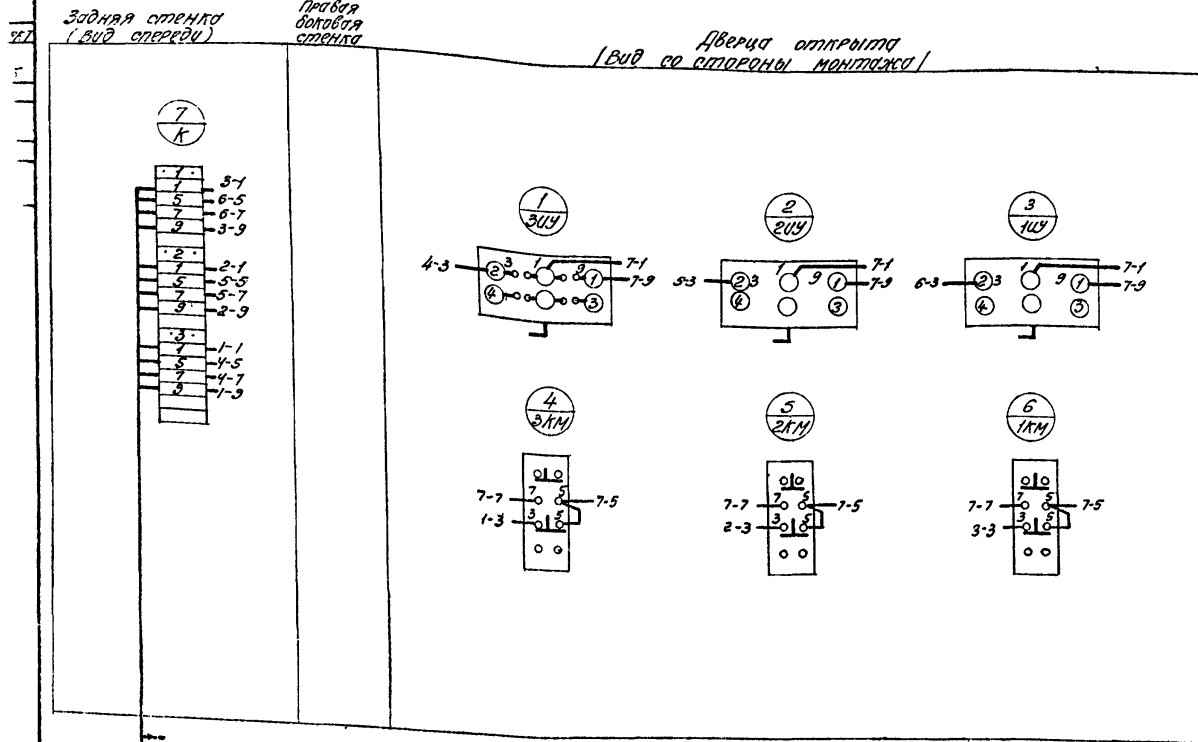 Задняя стенка
(Вид спереди)
Правая
боковая
стенка
Дверца открыта
/Вид со стороны монтажа/
7
К
· 1 ·
1 3-1
5 6-5
7 6-7
9 3-9
· 2 ·
1 2-1
5 5-5
7 5-7
9 2-9
· 3 ·
1 1-1
5 4-5
7 4-7
9 1-9
1
3ИУ
4-3 2 3 1 9 1 7-1
7-9
4 3
2
2ИУ
5-3 2 3 1 9 1 7-1
7-9
4 3
3
1ИУ
6-3 2 3 1 9 1 7-1
7-9
4 3
4
3КМ
7-7 7 5 7-5
1-3 3 5
5
2КМ
7-7 7 5 7-5
2-3 3 5
6
1КМ
7-7 7 5 7-5
3-3 3 5